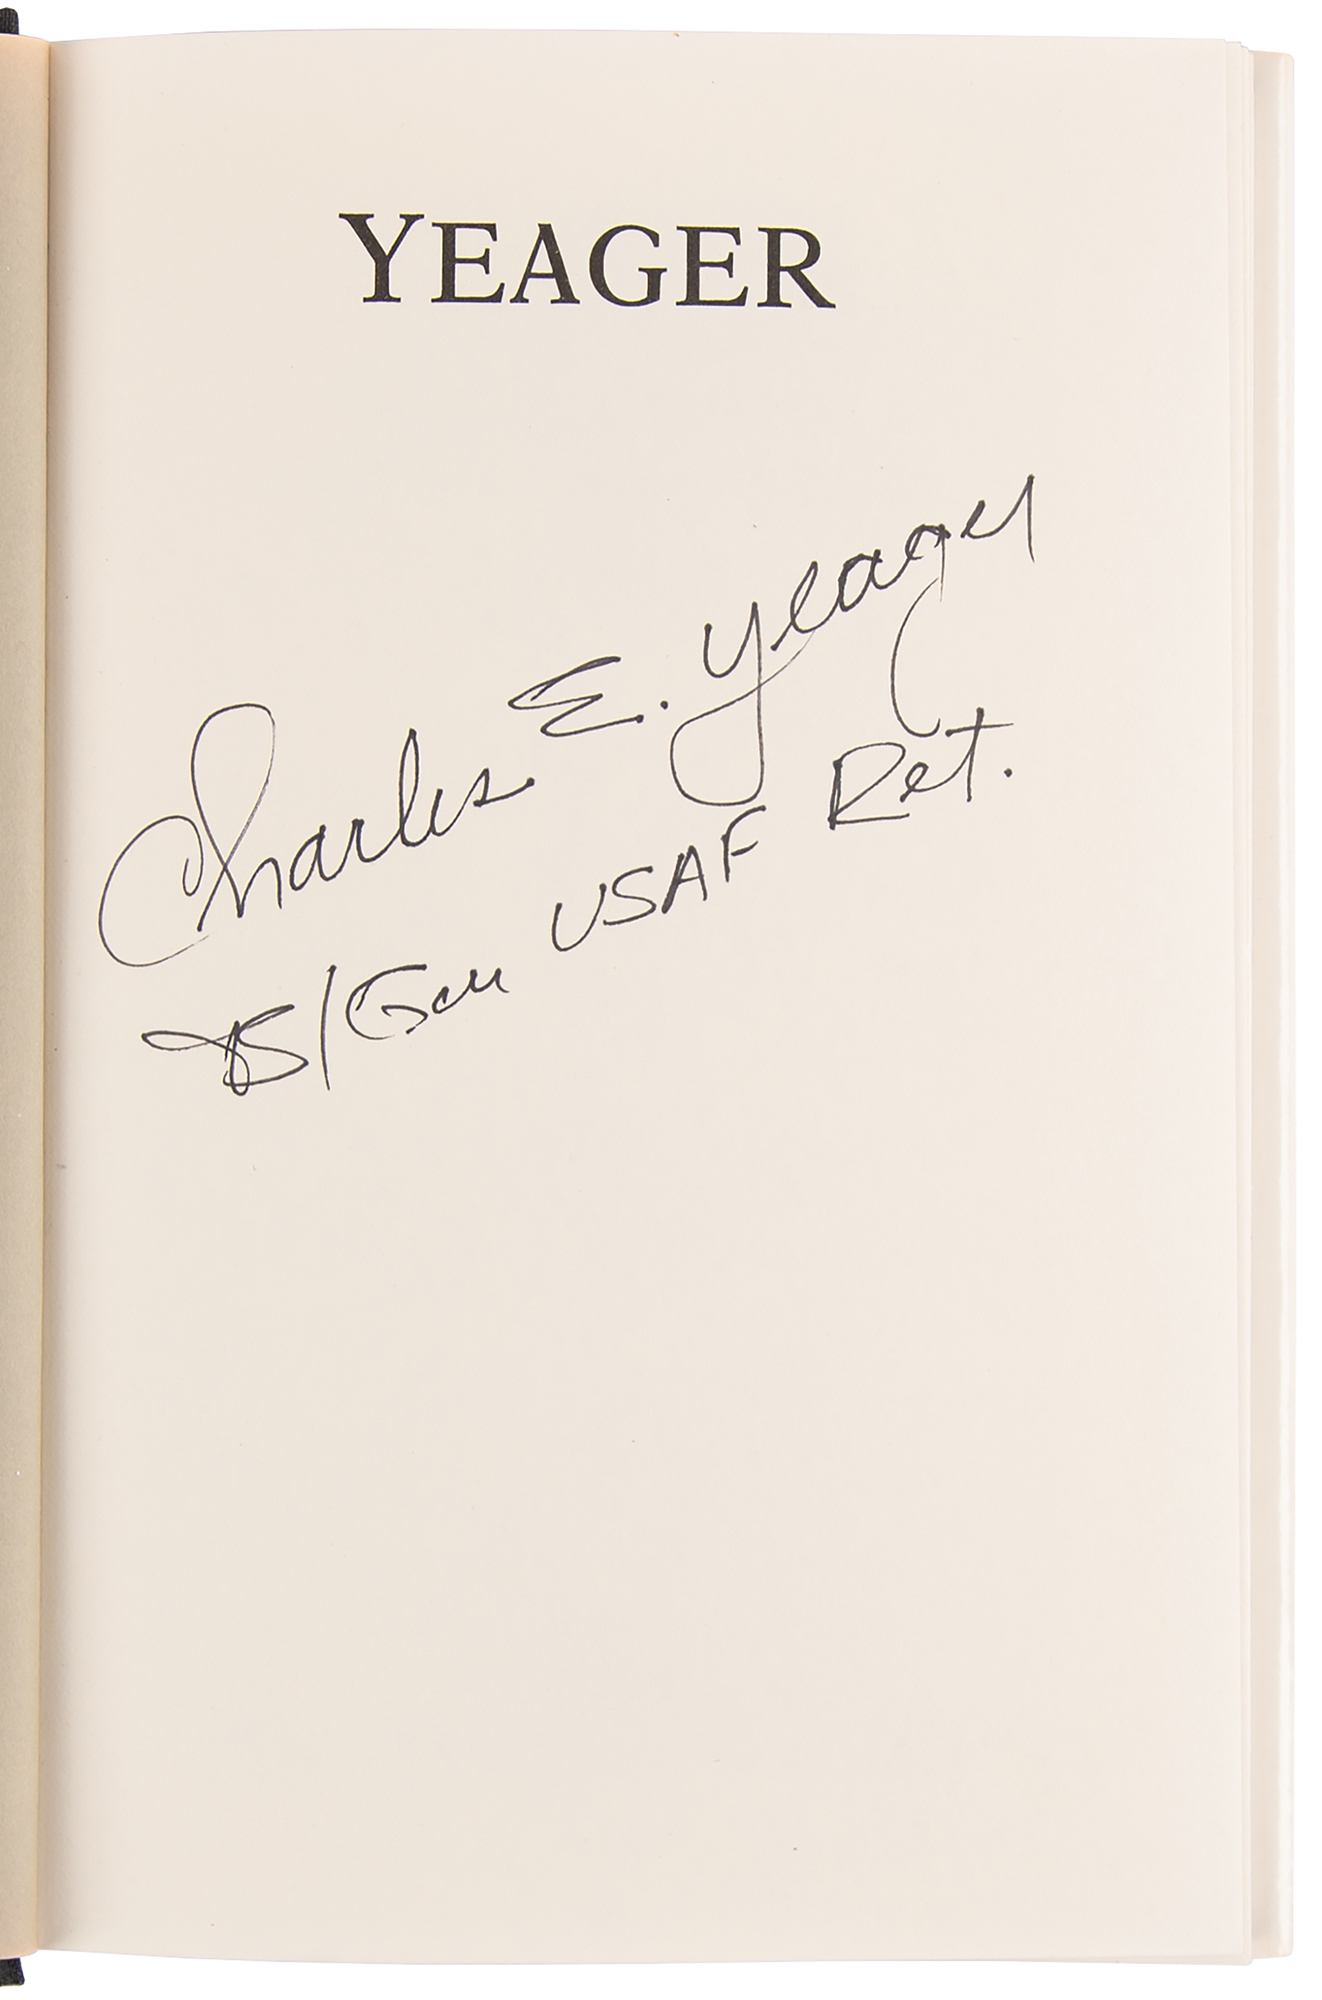 YEAGER
Charles E. Yeager
B/Gen USAF Ret.